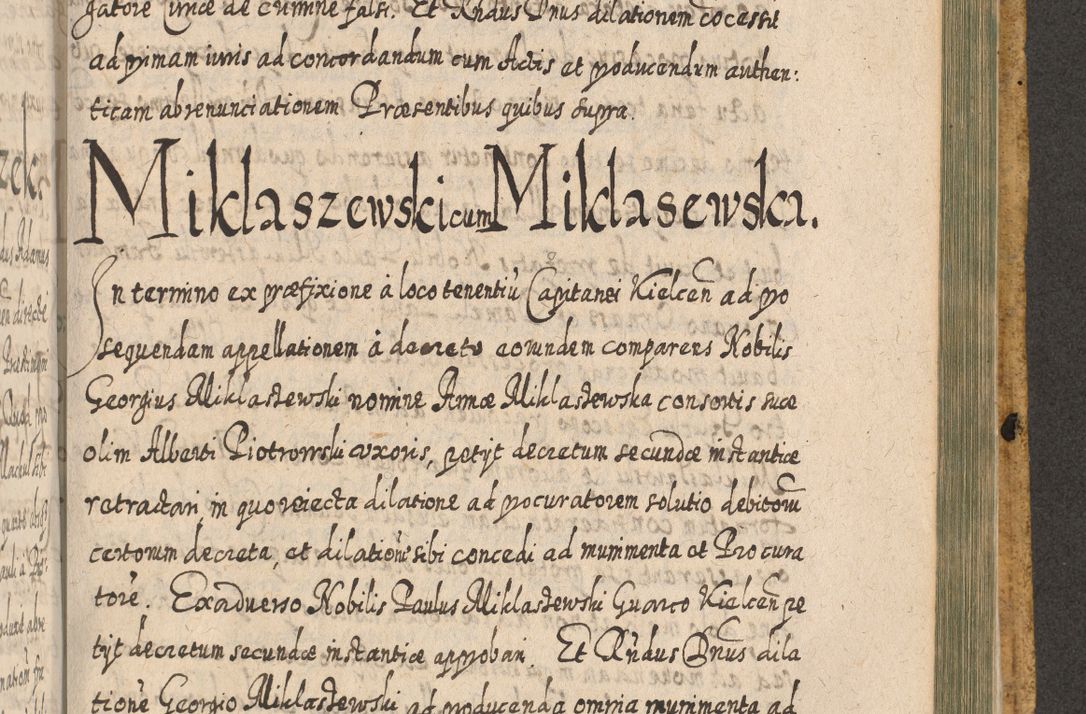 gatore Vince de crimine falsi. Et Rndus Dnus dilationem cocessit
ad primam iuris ad concordandum cum Actis et producendum authen:
ticam abrenunciationem Præsentibus quibus supra.
Miklaszewski cum Miklasewska.
In termino ex præfixione à loco tenentiũ Capitanei Kielceñ ad pro
sequendam appellationem à decreto eorundem comparens Nobilis
Georgius Miklaszewski nomine Annæ Miklaszewska consortis suæ
olim Alberti Piotrowski uxoris, petijt decretum secundæ instantiæ
retractari, in quo reiecta dilatione ad procuratorem solutio debitorũ
certorum decreta, et dilationẽ sibi concedi ad munimenta et Procura
torẽ. Exadverso Nobilis Paulus Miklaszewski Guarco Kielceñ pe
tijt decretum secundæ instantiæ approbari. Et Rñdus Dñus dila
tionẽ Georgio Miklaszewski ad producenda omnia munimenta ad